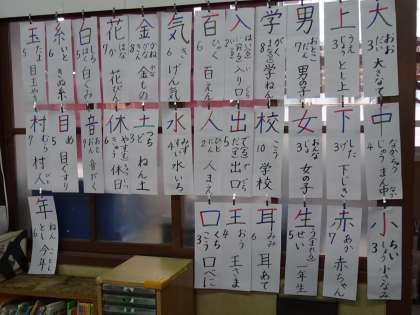 大
3 おお
中
4 なか
まん中
小
3 ちい
上
3 うえ
とし上
下
3 した
下じき
赤
7 あか
赤ちゃん
男
7 おとこ
男の子
女
3 おんな
女の子
生
5 せい
一年生
学
8 がく
学ねん
校
10 こう
学校
耳
6 みみ
耳あて
入
2
入り口
出
5
出口
王
4 おう
王さま
百
6 ひゃく
百えん
人
2 ひと
人まえ
口
3 くち こう
口べに
気
6 き
げん気
水
4 みず すい
水いろ
金
8 かね きん
土
3 つち ど
ねん土
花
7 はな か
花びら
休
6
休日
白
5 しろ
音
9 おと おん
音がく
糸
6 いと
目
5 め
目ぐすり
玉
5 たま
目玉やき
村
7 むら
村人
年
6 とし
今年